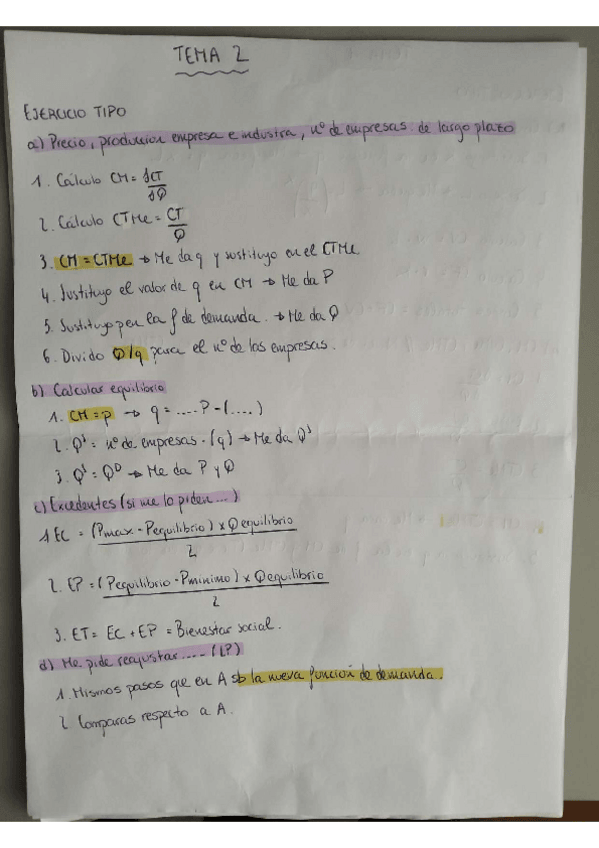 TEMA 2
EJERCICIO TIPO
a) Precio, produccion empresa e industria, nº de empresas de largo plazo
1. Cálculo CM = dCT/dQ
2. Cálculo CTMe = CT/Q
3. CM = CTMe → Me da q y sustituyo en el CTMe
4. Sustituyo el valor de q en CM → Me da P
5. Sustituyo p en la f de demanda. → Me da Q
6. Divido Q/q para el nº de las empresas.
b) Calcular equilibrio
1. CM = p → q = .... P - (....)
2. Qˢ = nº de empresas · (q) → Me da Qˢ
3. Qˢ = Qᴰ → Me da P y Q
c) Excedentes (si me lo piden...)
1 EC = (Pmax - Pequilibrio) x Qequilibrio / 2
2. EP = (Pequilibrio - Pminimo) x Qequilibrio / 2
3. ET = EC + EP = Bienestar social.
d) Me pide reajustar.... (LP)
1. Mismos pasos que en A sb la nueva función de demanda.
2 Comparas respecto a A.